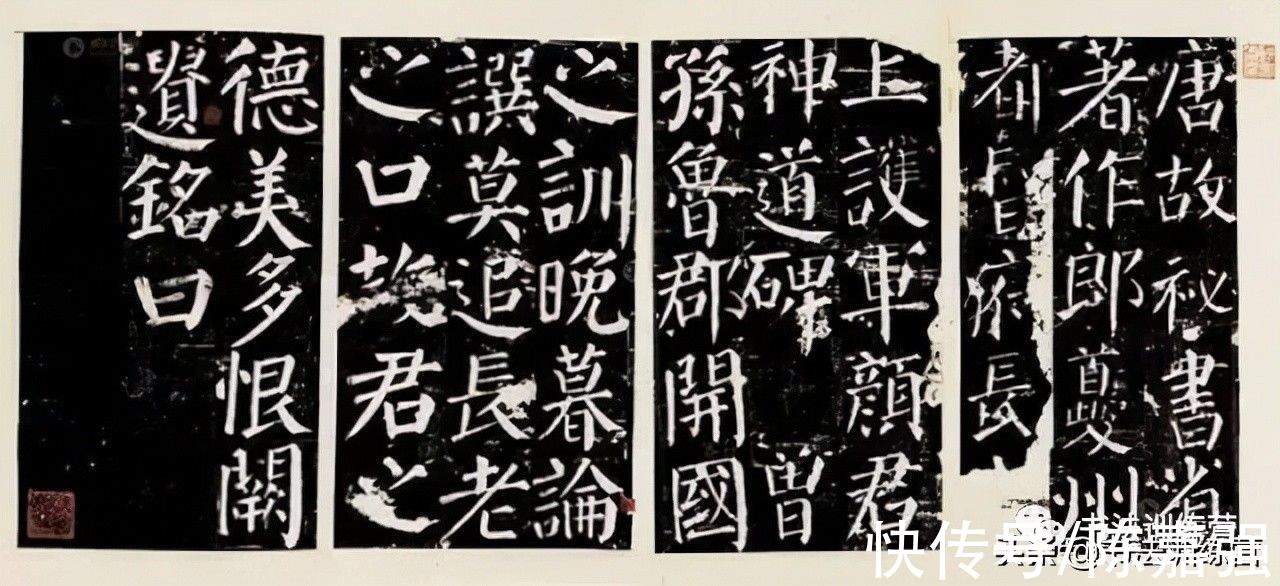 唐故祕書省
著作郎夔州
都督府長
上護軍顏君
神道碑曾
孫魯郡開國
之訓晚暮論
譔莫追長老
之口故君之
德美多恨闕
遺銘曰
快传号/陈嘉强